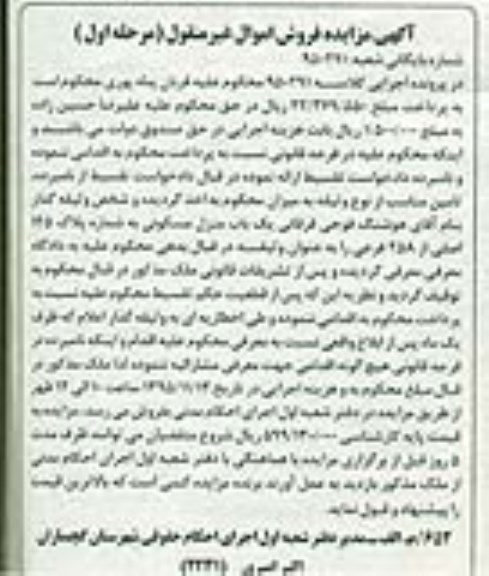 آگهی مزایده فروش اموال غیر منقول (مرحله اول)
شماره بایگانی شعبه ۹۵۰۳۷۱
در پرونده اجرایی کلاسه ۹۵۰۳۷۱ محکوم علیه قربان پوری محکوم است
به پرداخت مبلغ ریال در حق محکوم علیه علیرضا حسین زاده
به مبلغ ریال بابت هزینه اجرایی در حق صندوق دولت می باشد و
اینکه محکوم علیه در فرجه قانونی نسبت به پرداخت محکوم به اقدامی ننموده
و نامبرده دادخواست تقسیط ارائه نموده در قبال دادخواست تقسیط از نامبرده
تامین مناسب از نوع وثیقه به میزان محکوم به اخذ گردیده و شخص وثیقه گذار
بنام آقای هوشنگ فرقانی یک باب منزل مسکونی به شماره پلاک
اصلی از فرعی را به عنوان وثیقه در قبال بدهی محکوم علیه به دادگاه
معرفی گردیده و پس از تشریفات قانونی ملک مذکور در قبال محکوم به
توقیف گردید و نظر به این که پس از قطعیت حکم تقسیط محکوم علیه نسبت به
پرداخت محکوم به اقدامی ننموده و طی اخطاریه ای به وثیقه گذار اعلام که ظرف
یک ماه پس از ابلاغ واقعی نسبت به معرفی محکوم علیه اقدام و اینکه نامبرده در
فرجه قانونی هیچ گونه اقدامی جهت معرفی مشارالیه ننموده لذا ملک مذکور در
قبال مبلغ محکوم به و هزینه اجرایی در تاریخ ۱۳۹۵/۱۱/۱۳ ساعت ۱۰ الی ۱۲ ظهر
از طریق مزایده در دفتر شعبه اول اجرای احکام مدنی بفروش می رسد. مزایده به
قیمت پایه کارشناسی ریال شروع متقاضیان می توانند ظرف مدت
۵ روز قبل از برگزاری مزایده با هماهنگی با دفتر شعبه اول اجرای احکام مدنی
از ملک مذکور بازدید به عمل آورند برنده مزایده کسی است که بالاترین قیمت
را پیشنهاد و قبول نماید.
۶۵۳/م الف - مدیر دفتر شعبه اول اجرای احکام حقوقی شهرستان گچساران
اکبر (۲۲۳۱)